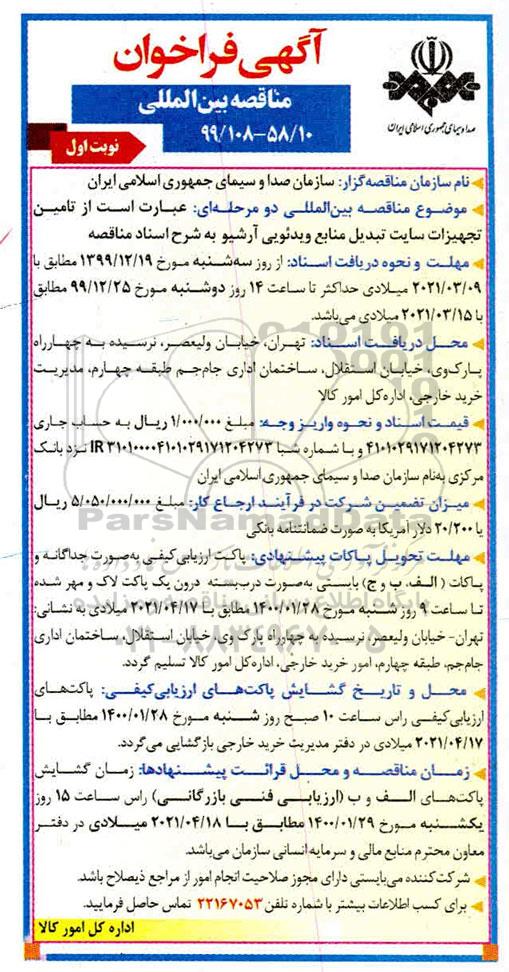 آگهی فراخوان
مناقصه بین المللی
۹۹/۱۰۸-۵۸/۱۰
نوبت اول
صدا و سیمای جمهوری اسلامی ایران
نام سازمان مناقصه‌گزار: سازمان صدا و سیمای جمهوری اسلامی ایران
موضوع مناقصه بین‌المللی دو مرحله‌ای: عبارت است از تامین
تجهیزات سایت تبدیل منابع ویدئویی آرشیو به شرح اسناد مناقصه
مهلت و نحوه دریافت اسناد: از روز سه‌شنبه مورخ ۱۳۹۹/۱۲/۱۹ مطابق با
۲۰۲۱/۰۳/۰۹ میلادی حداکثر تا ساعت ۱۴ روز دوشنبه مورخ ۹۹/۱۲/۲۵ مطابق
با ۲۰۲۱/۰۳/۱۵ میلادی می‌باشد.
محل دریافت اسناد: تهران، خیابان ولیعصر، نرسیده به چهارراه
پارک‌وی، خیابان استقلال، ساختمان اداری جام‌جم طبقه چهارم، مدیریت
خرید خارجی، اداره‌کل امور کالا
قیمت اسناد و نحوه واریز وجه: مبلغ ۱/۰۰۰/۰۰۰ ریال به حساب جاری
۴۱۰۱۰۲۹۱۷۱۲۰۴۲۷۳ و با شماره شبا IR ۳۱۰۱۰۰۰۰۴۱۰۱۰۲۹۱۷۱۲۰۴۲۷۳ نزد بانک
مرکزی به‌نام سازمان صدا و سیمای جمهوری اسلامی ایران
میزان تضمین شرکت در فرآیند ارجاع کار: مبلغ ۵/۰۵۰/۰۰۰/۰۰۰ ریال
یا ۲۰/۲۰۰ دلار آمریکا به صورت ضمانتنامه بانکی
مهلت تحویل پاکات پیشنهادی: پاکت ارزیابی کیفی به‌صورت جداگانه و
پاکات ( الف، ب و ج) بایستی به‌صورت درب‌بسته درون یک پاکت لاک و مهر شده
تا ساعت ۹ روز شنبه مورخ ۱۴۰۰/۰۱/۲۸ مطابق با ۲۰۲۱/۰۴/۱۷ میلادی به نشانی:
تهران- خیابان ولیعصر نرسیده به چهارراه پارک وی، خیابان استقلال، ساختمان اداری
جام‌جم، طبقه چهارم، امور خرید خارجی، اداره‌کل امور کالا تسلیم گردد.
محل و تاریخ گشایش پاکت‌های ارزیابی‌کیفی: پاکت‌های
ارزیابی‌کیفی راس ساعت ۱۰ صبح روز شنبه مورخ ۱۴۰۰/۰۱/۲۸ مطابق با
۲۰۲۱/۰۴/۱۷ میلادی در دفتر مدیریت خرید خارجی بازگشایی می‌گردد.
زمان مناقصه و محل قرائت پیشنهادها: زمان گشایش
پاکت‌های الف و ب (ارزیابی فنی بازرگانی) راس ساعت ۱۵ روز
یکشنبه مورخ ۱۴۰۰/۰۱/۲۹ مطابق با ۲۰۲۱/۰۴/۱۸ میلادی در دفتر
معاون محترم منابع مالی و سرمایه انسانی سازمان می‌باشد.
شرکت‌کننده می‌بایستی دارای مجوز صلاحیت انجام امور از مراجع ذیصلاح باشد.
برای کسب اطلاعات بیشتر با شماره تلفن ۲۲۱۶۷۰۵۳ تماس حاصل فرمایید.
اداره کل امور کالا
ParsNamadData